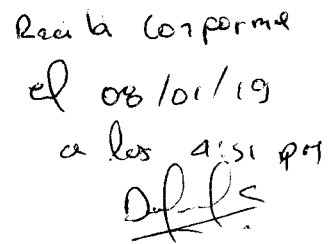 Recibi conforme
el 08/01/19
a las 4:51 pm